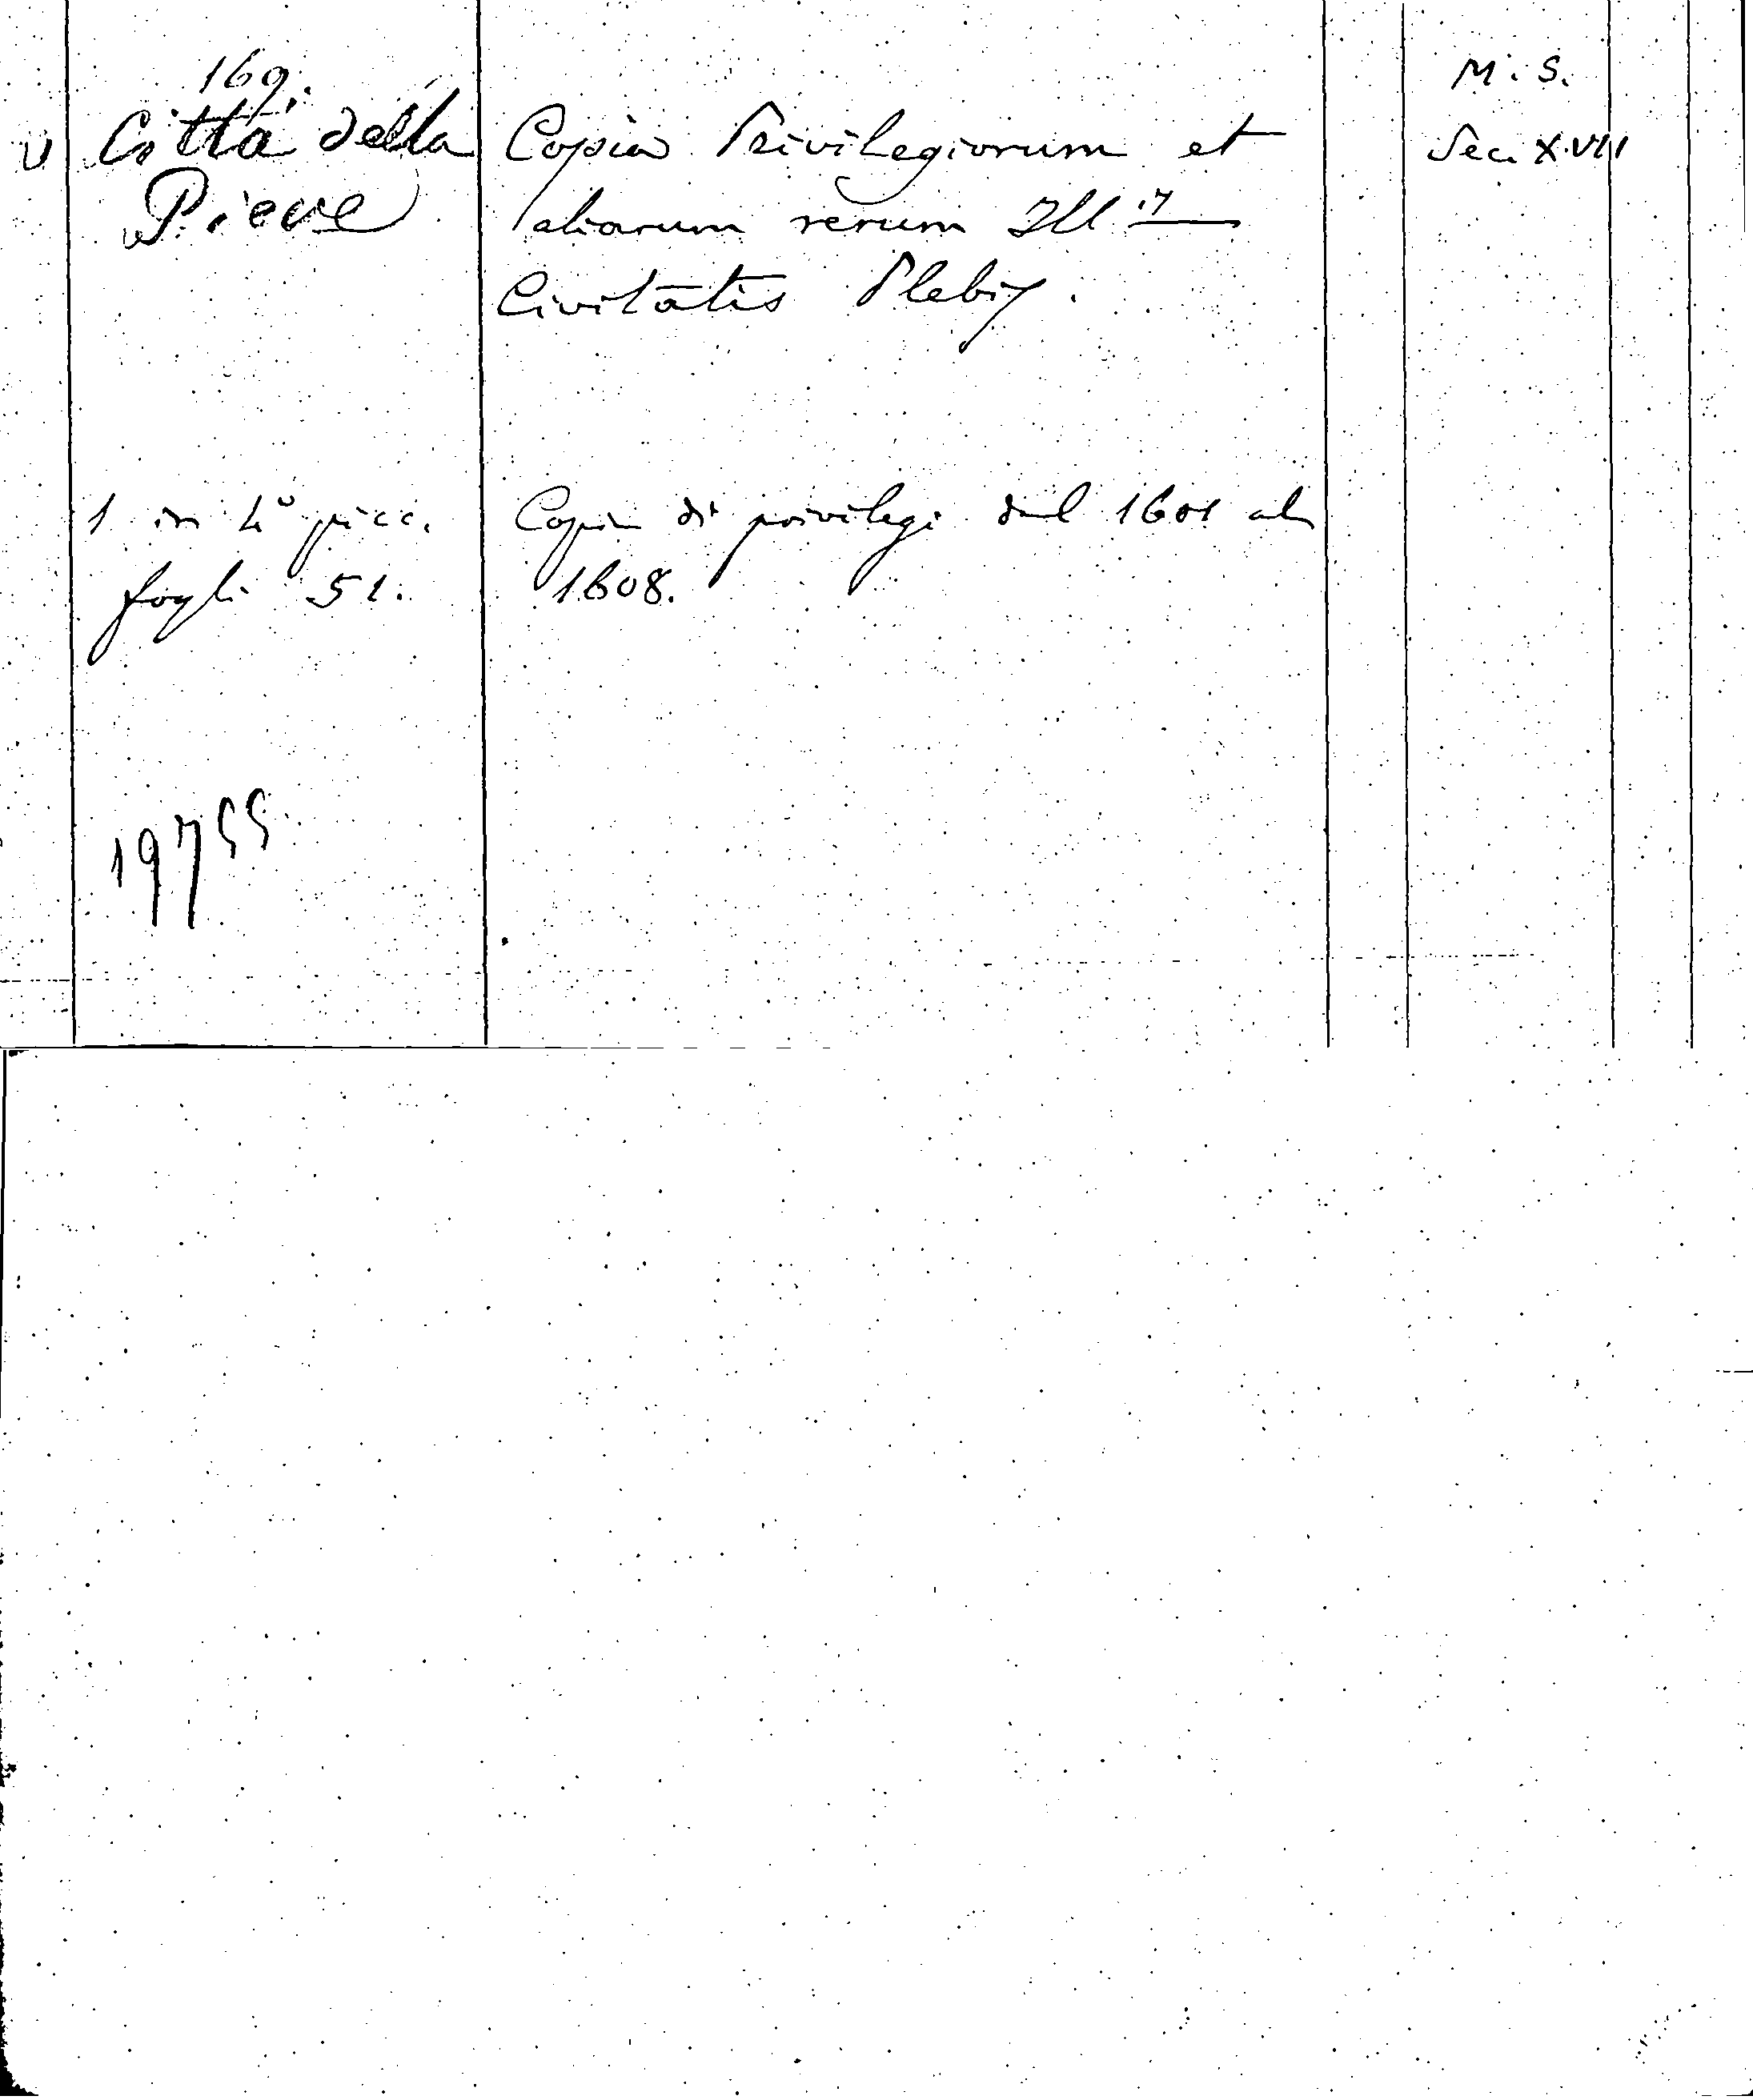 169.
V Città della Pieve
Copia Privilegiorum et
aliarum rerum Ill.
Civitatis Plebis.
M. S.
Sec. XVII
1 in 4° picc.
fogli 51.
Copia di privilegi dal 1601 al
1608.
19755